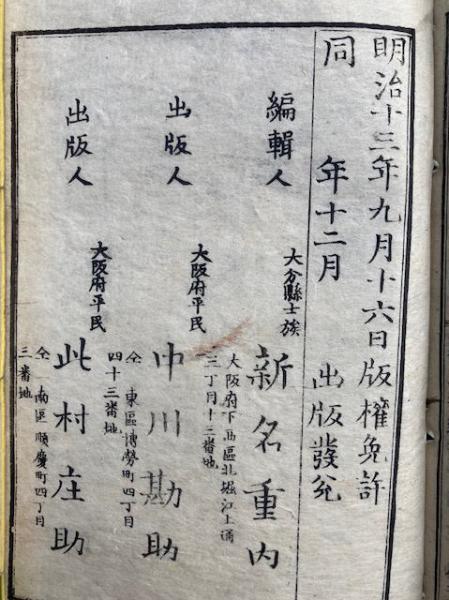 明治十三年九月十六日版權免許
同年十二月出版發兌
編輯人
大分縣士族
新名重内
大阪府下西區北堀江上通
三丁目十三番地
出版人
大阪府平民
中川勘助
仝東區博勞町四丁目
四十三番地
出版人
大阪府平民
此村庄助
仝南區順慶町四丁目
三番地